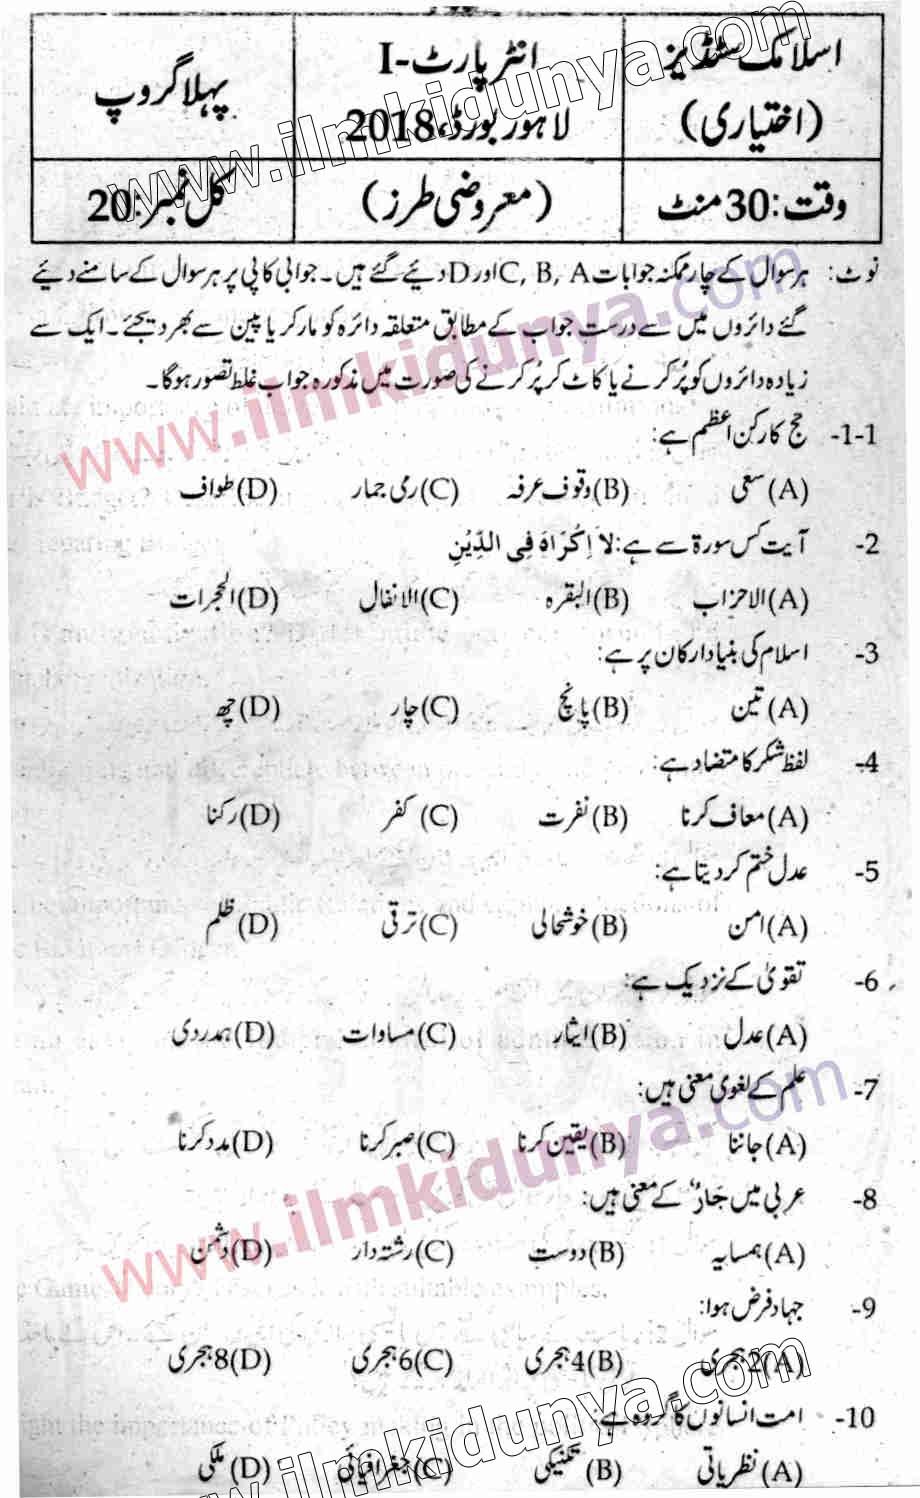 اسلامک سٹڈیز
(اختیاری)
انٹر پارٹ-I
لاہور بورڈ، 2018
پہلا گروپ
وقت: 30 منٹ
(معروضی طرز)
کل نمبر: 20
نوٹ: ہر سوال کے چار ممکنہ جوابات C, B, A اور D دیئے گئے ہیں۔ جوابی کاپی پر ہر سوال کے سامنے دیئے
گئے دائروں میں سے درست جواب کے مطابق متعلقہ دائرہ کو مارکر یا پین سے بھر دیجئے۔ ایک سے
زیادہ دائروں کو پُر کرنے یا کاٹ کر پُر کرنے کی صورت میں مذکورہ جواب غلط تصور ہوگا۔
1-1- حج کا رکن اعظم ہے:
(A) سعی (B) وقوف عرفہ (C) رمی جمار (D) طواف
2- آیت کس سورۃ سے ہے: لَا اِكْرَاهَ فِى الدِّيْنِ
(A) الاحزاب (B) البقرہ (C) الانفال (D) الحجرات
3- اسلام کی بنیاد ارکان پر ہے:
(A) تین (B) پانچ (C) چار (D) چھ
4- لفظ شکر کا متضاد ہے:
(A) معاف کرنا (B) نفرت (C) کفر (D) رکنا
5- عدل ختم کر دیتا ہے:
(A) امن (B) خوشحالی (C) ترقی (D) ظلم
6- تقویٰ کے نزدیک ہے:
(A) عدل (B) ایثار (C) مساوات (D) ہمدردی
7- علم کے لغوی معنی ہیں:
(A) جاننا (B) یقین کرنا (C) صبر کرنا (D) مدد کرنا
8- عربی میں جَارٌ کے معنی ہیں:
(A) ہمسایہ (B) دوست (C) رشتہ دار (D) دشمن
9- جہاد فرض ہوا:
(A) 2 ہجری (B) 4 ہجری (C) 6 ہجری (D) 8 ہجری
10- امت انسانوں کا گروہ ہے:
(A) نظریاتی (B) تکنیکی (C) جغرافیائی (D) ملکی
www.ilmkidunya.com
www.ilmkidunya.com
www.ilmkidunya.com
www.ilmkidunya.com